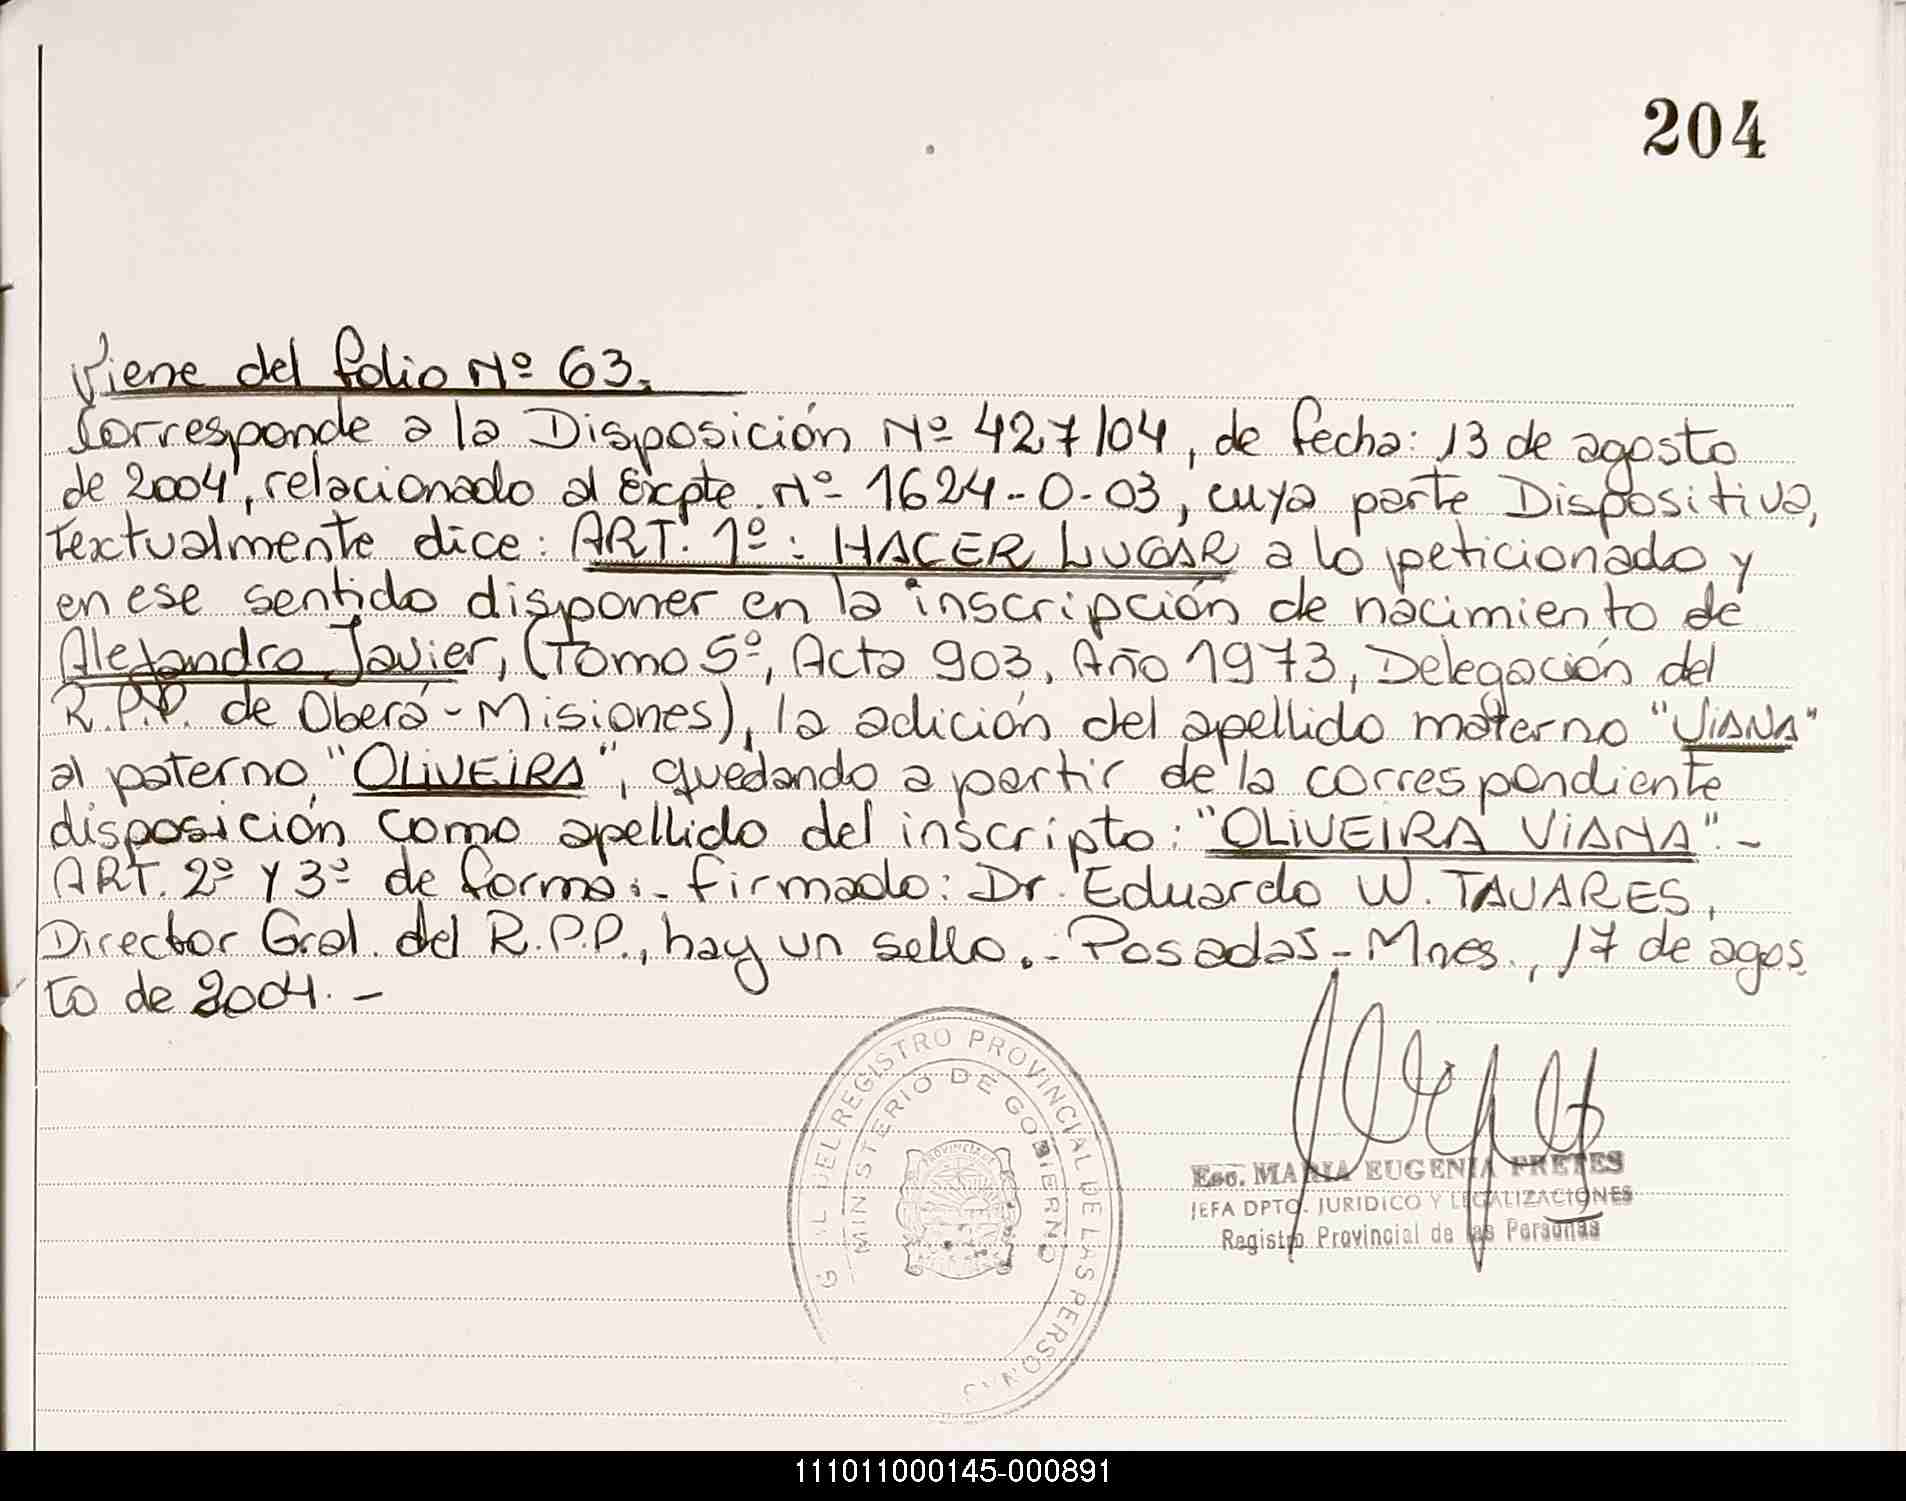 204
Viene del folio Nº 63.
Corresponde a la Disposición Nº 427/04, de fecha: 13 de agosto
de 2004, relacionado al Expte. Nº 1624-O-03, cuya parte Dispositiva,
textualmente dice: ART. 1º: HACER LUGAR a lo peticionado y
en ese sentido disponer en la inscripción de nacimiento de
Alejandro Javier, (Tomo 5º, Acta 903, Año 1973, Delegación del
R.P.P. de Oberá-Misiones), la adición del apellido materno "VIANA"
al paterno "OLIVEIRA", quedando a partir de la correspondiente
disposición como apellido del inscripto: "OLIVEIRA VIANA".-
ART. 2º y 3º de forma.- firmado: Dr. Eduardo W. TAVARES,
Director Gral. del R.P.P., hay un sello.- Posadas-Mnes., 17 de agos
to de 2004.-
G L DEL REGISTRO PROVINCIAL DE LAS PERSONAS
MINISTERIO DE GOBIERNO
PROVINCIA DE
Esc. MARIA EUGENIA PRETES
JEFA DPTO. JURIDICO Y LEGALIZACIONES
Registro Provincial de las Personas
111011000145-000891